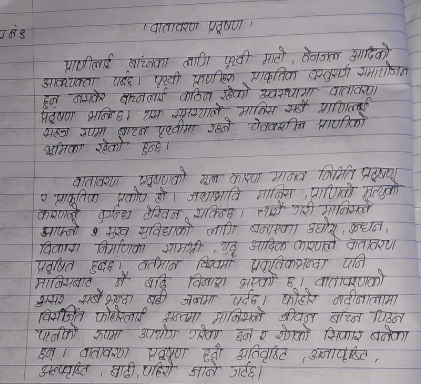 वातावरण प्रदूषण
प्राणीलाई बाँच्नका लागि पृथ्वी माटो, तेजजल आदिको
आवश्यकता पर्दछ। पृथ्वी प्राणीहरू प्राकृतिक वस्तुसँगै समायोजन
हुन नसकेर बाँच्नलाई कठिन रहेको अवस्थामा वातावरण
प्रदूषण भनिन्छ। यस समस्याले मानिस सबै प्राणीलाई
सहज रूपमा बाँच्न पृथ्वीमा रहने चेतनशील प्राणीको
भूमिका रहेको हुन्छ।
वातावरण प्रदूषणको मूल कारण मानव निर्मित प्रदूषण
र प्राकृतिक प्रकोप हो। जथाभावि मानिस, प्राणीको मृत्युको
कारणले दुर्गन्ध देखिन सकिन्छ। त्यसै गरी मानिसले
आफ्नो सुख सुविधाको लागि बनाएका उद्योग, इन्धन,
विकास निर्माणका सामग्री, युद्ध आदिक कारणले वातावरण
प्रदूषित हुन्छ। वर्तमान विश्वमा प्रकृतिकभन्दा पनि
मानिसबाट नै बढि विनाश भएको छ। वातावरणको
असर सबै भन्दा बढी जलमा पर्दछ। फोहोर नदीनालामा
विसर्जित फोहरलाई मानिसले जीवन बाँच्न पिउन
पानीको रूपमा उपयोग गरेका हुन् र रोगको सिकार बनेका
छन्। वातावरण प्रदूषण हुँदा अतिवृष्टि, अनावृष्टि,
अल्पवृष्टि, बाढी, पहिरो जाने गर्दछ।